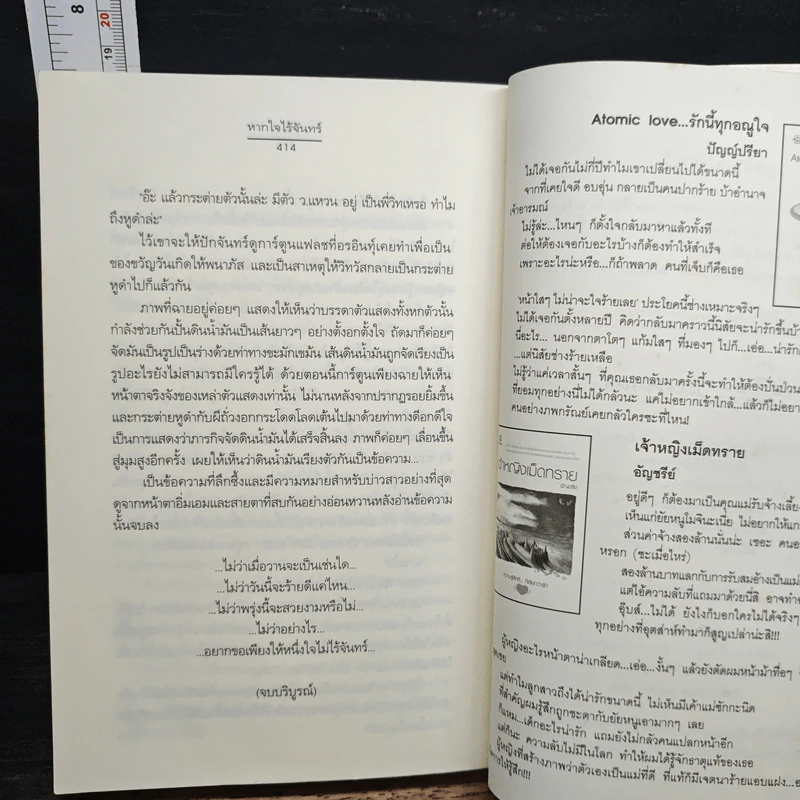 8
19
20
หากใจไร้จันทร์
414
"อ๊ะ แล้วกระต่ายตัวนั้นล่ะ มีตัว ว.แหวน อยู่ เป็นพี่วิทเหรอ ทำไม
ถึงหูดำล่ะ"
ไว้เขาจะให้ปักจันทร์ดูการ์ตูนแฟลชที่อรอินทุ์เคยทำเพื่อเป็น
ของขวัญวันเกิดให้พนาภัส และเป็นสาเหตุให้วิทวัสกลายเป็นกระต่าย
หูดำไปก็แล้วกัน
ภาพที่ฉายอยู่ค่อยๆ แสดงให้เห็นว่าบรรดาตัวแสดงทั้งหกตัวนั้น
กำลังช่วยกันปั้นดินน้ำมันเป็นเส้นยาวๆ อย่างตั้งอกตั้งใจ ถัดมาก็ค่อยๆ
จัดมันเป็นรูปเป็นร่างด้วยท่าทางขะมักเขม้น เส้นดินน้ำมันถูกจัดเรียงเป็น
รูปอะไรยังไม่สามารถมีใครรู้ได้ ด้วยตอนนี้การ์ตูนเพียงฉายให้เห็น
หน้าตาจริงจังของเหล่าตัวแสดงเท่านั้น ไม่นานหลังจากปรากฏรอยยิ้มขึ้น
และกระต่ายหูดำกับผีถั่วงอกกระโดดโลดเต้นไปมาด้วยท่าทางดีอกดีใจ
เป็นการแสดงว่าภารกิจจัดดินน้ำมันได้เสร็จสิ้นลง ภาพก็ค่อยๆ เลื่อนขึ้น
สู่มุมสูงอีกครั้ง เผยให้เห็นว่าดินน้ำมันเรียงตัวกันเป็นข้อความ...
เป็นข้อความที่ลึกซึ้งและมีความหมายสำหรับบ่าวสาวอย่างที่สุด
ดูจากหน้าตาอิ่มเอมและสายตาที่สบกันอย่างอ่อนหวานหลังอ่านข้อความ
นั้นจบลง
...ไม่ว่าเมื่อวานจะเป็นเช่นใด...
...ไม่ว่าวันนี้จะร้ายดีแค่ไหน...
...ไม่ว่าพรุ่งนี้จะสวยงามหรือไม่...
...ไม่ว่าอย่างไร...
...อยากขอเพียงให้หนึ่งใจไม่ไร้จันทร์...
(จบบริบูรณ์)
Atomic love...รักนี้ทุกอณูใจ
ปัญญ์ปรียา
ไม่ได้เจอกันไม่กี่ปีทำไมเขาเปลี่ยนไปได้ขนาดนี้
จากที่เคยใจดี อบอุ่น กลายเป็นคนปากร้าย บ้าอำนาจ
เจ้าอารมณ์
ไม่รู้ล่ะ...ไหนๆ ก็ตั้งใจกลับมาหาแล้วทั้งที
ต่อให้ต้องเจอกับอะไรบ้างก็ต้องทำให้สำเร็จ
เพราะอะไรน่ะหรือ...ก็ถ้าพลาด คนที่เจ็บก็คือเธอ
หน้าใสๆ ไม่น่าจะใจร้ายเลย' ประโยคนี้ช่างเหมาะจริงๆ
ไม่ได้เจอกันตั้งหลายปี คิดว่ากลับมาคราวนี้นิสัยจะน่ารักขึ้นบ้า
นี่อะไร... นอกจากตาโตๆ แก้มใสๆ ที่มองๆ ไปก็...เอ่อ...น่ารักก็
...แต่นิสัยช่างร้ายเหลือ
ไม่รู้ว่าแค่เวลาสั้นๆ ที่คุณเธอกลับมาครั้งนี้จะทำให้ต้องปั่นป่วน
ที่ยอมทุกอย่างนี่ไม่ได้กลัวนะ แค่ไม่อยากเข้าใกล้...แล้วก็ไม่อยา
คนอย่างภพกรัณย์เคยกลัวใครซะที่ไหน!
เจ้าหญิงเม็ดทราย
เจ้าหญิงเม็ดทราย
อัญชรีย์
อยู่ดีๆ ก็ต้องมาเป็นคุณแม่รับจ้างเลี้ยง
เห็นแก่ยัยหนูโมจินะเนี่ย ไม่อยากให้แก
ส่วนค่าจ้างสองล้านนั่นน่ะ เชอะ คนอ
หรอก (ซะเมื่อไหร่)
สองล้านบาทแลกกับการรับสมอ้างเป็นแม่
แต่ไอ้ความลับที่แถมมาด้วยนี่สิ อาจทำอ
อุ๊บส์...ไม่ได้ ยังไงก็บอกใครไม่ได้จริงๆ
ทุกอย่างที่อุตส่าห์ทำมาก็สูญเปล่าน่ะสิ!!!
ผู้หญิงอะไรหน้าตาน่าเกลียด...เอ่อ...งั้นๆ แล้วยังตัดผมหน้าม้าทื่อๆ
แต่ทำไมลูกสาวถึงได้น่ารักขนาดนี้ ไม่เห็นมีเค้าแม่ซักกะนิด
ที่สำคัญผมรู้สึกถูกชะตากับยัยหนูเอามากๆ เลย
ก็แหม...เด็กอะไรน่ารัก แถมยังไม่กลัวคนแปลกหน้าอีก
แต่ก็นะ ความลับไม่มีในโลก ทำให้ผมได้รู้จักธาตุแท้ของเธอ
ผู้หญิงที่สร้างภาพว่าตัวเองเป็นแม่ที่ดี ที่แท้ก็มีเจตนาร้ายแอบแฝง...อ